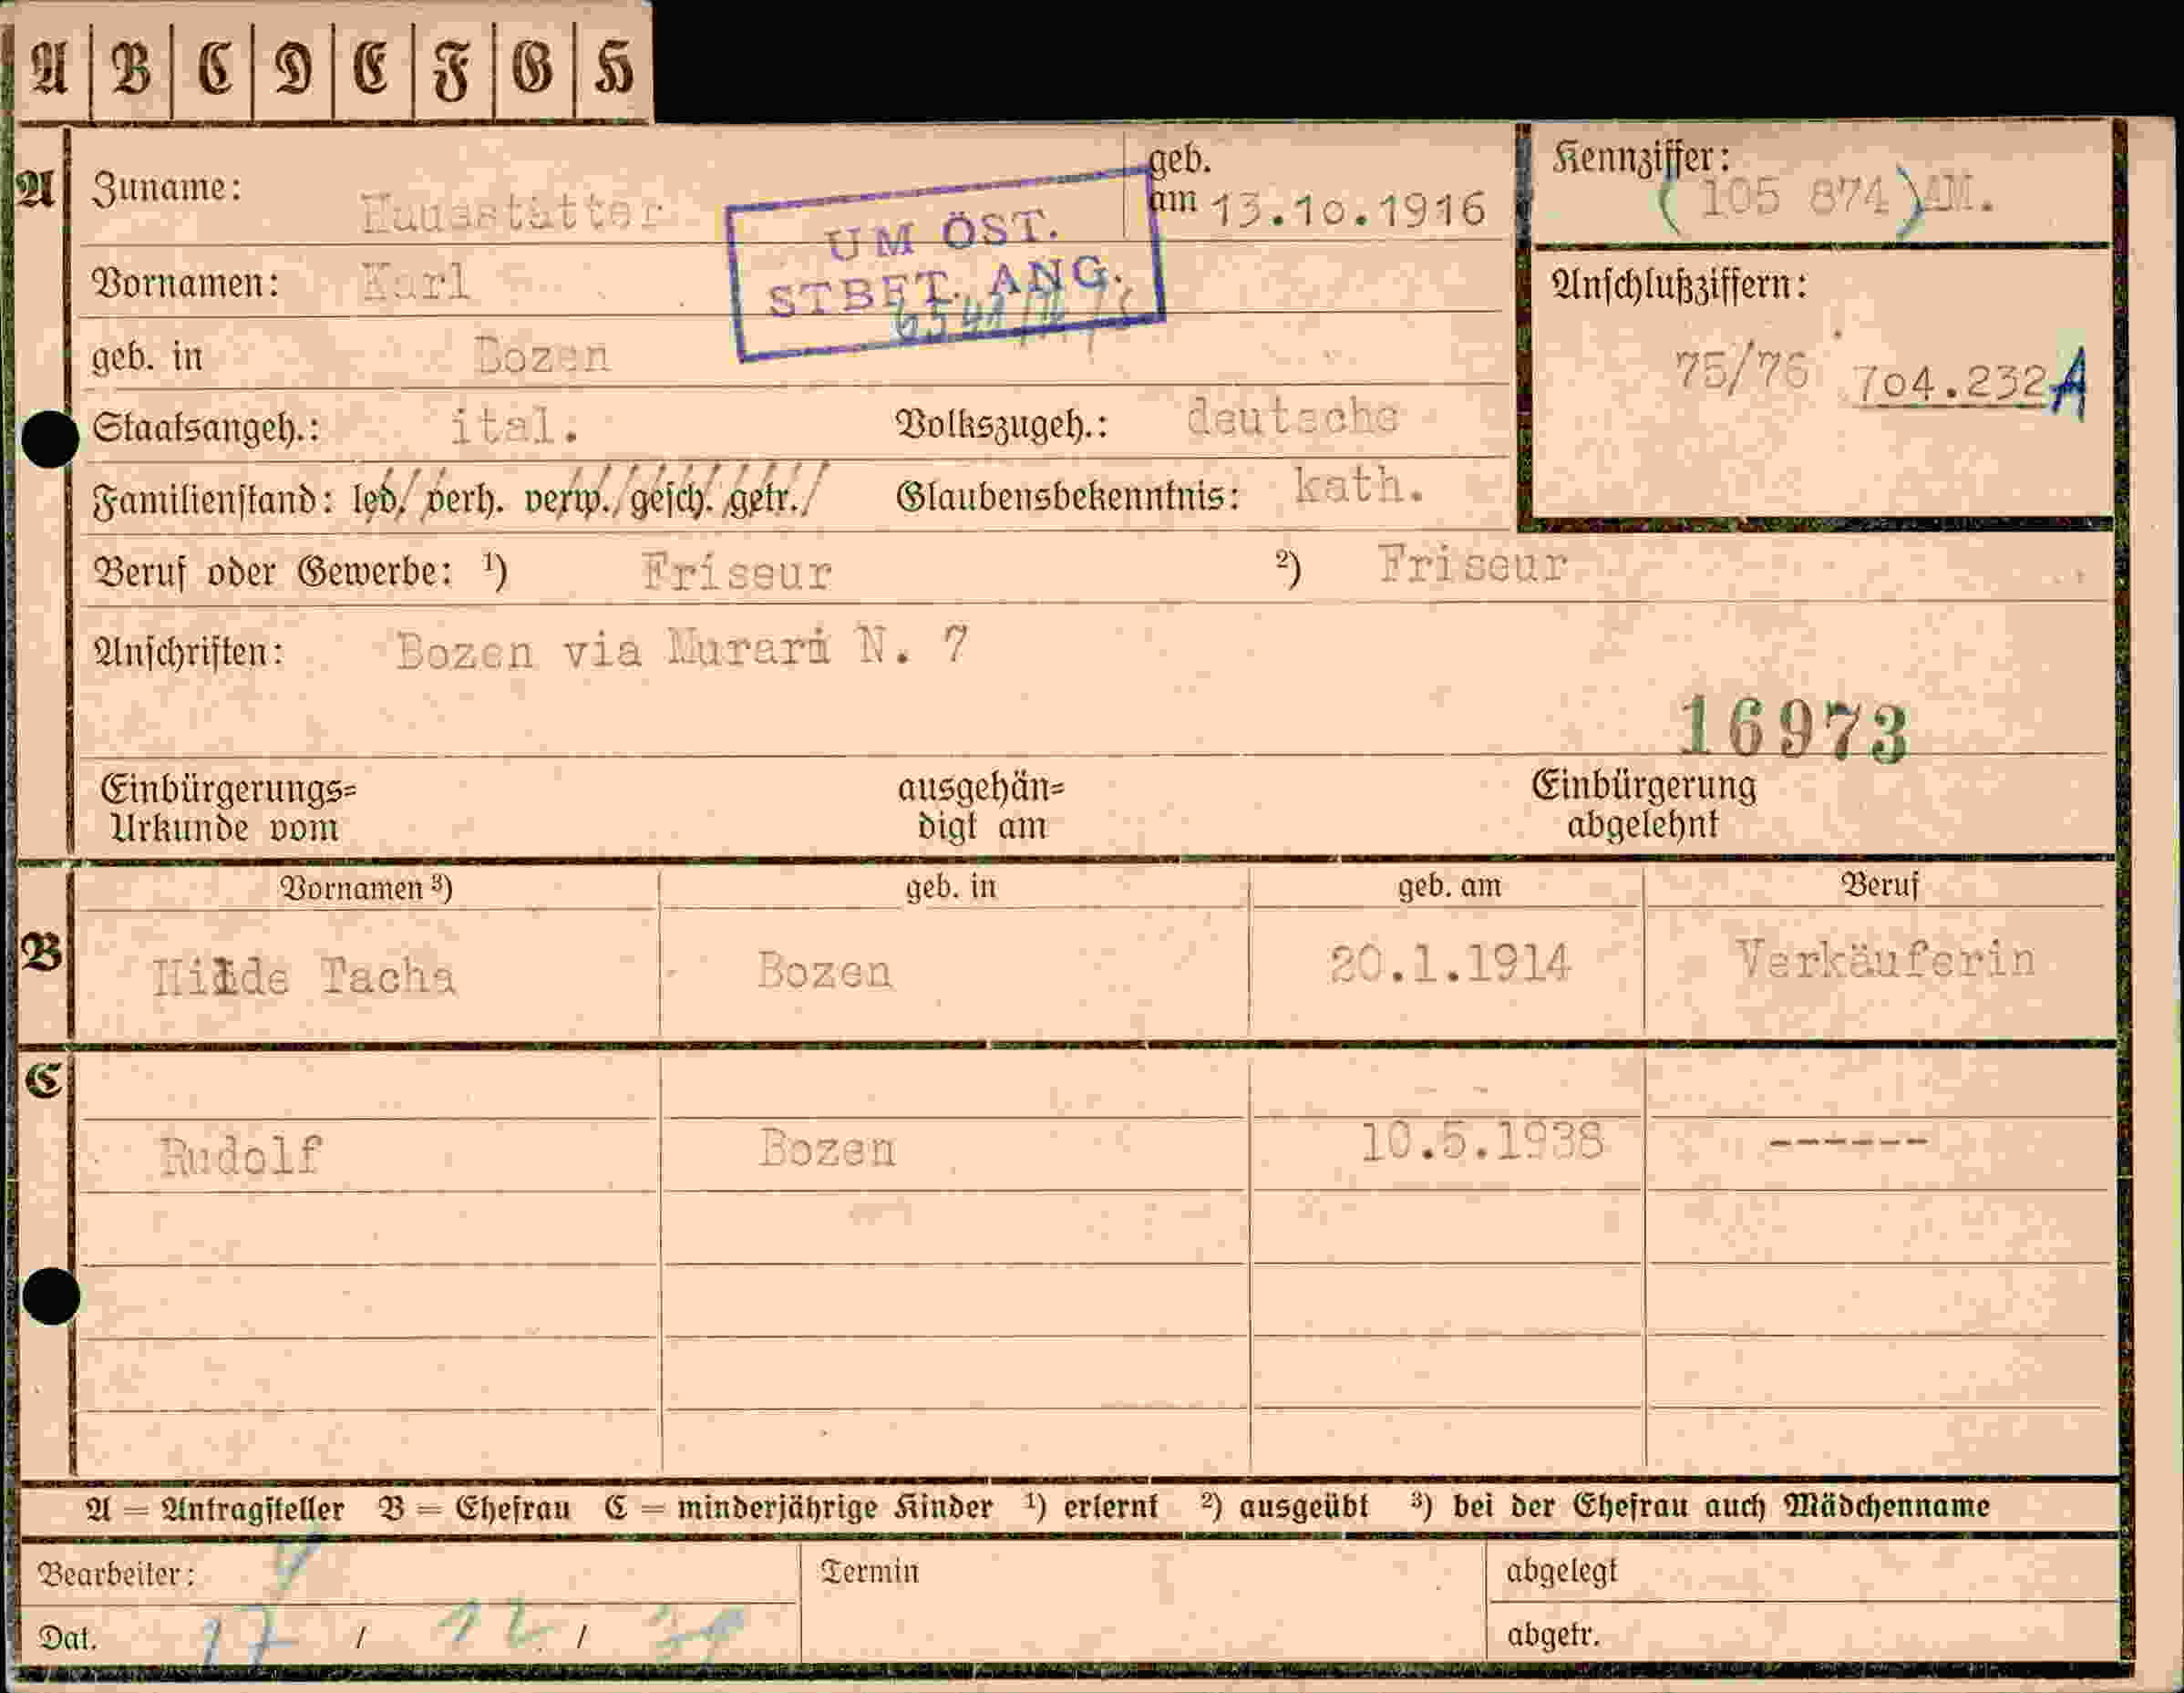 A B C D E F G H
A Zuname: geb. am 13.10.1916
Kennziffer: (105 874) AM.
UM ÖST. STBET. ANG.
Vornamen: Karl
Anschlußziffern:
75/76 704.232 A
geb. in Bozen
Staatsangeh.: ital. Volkszugeh.: deutsche
Familienstand: led. verh. verw. gesch. getr. Glaubensbekenntnis: kath.
Beruf oder Gewerbe: 1) Friseur 2) Friseur
Anschriften: Bozen via N. 7
16973
Einbürgerungs= ausgehän= Einbürgerung
Urkunde vom digt am abgelehnt
Vornamen 3) geb. in geb. am Beruf
B Hilde Tacha Bozen 20.1.1914 Verkäuferin
C
Rudolf Bozen 10.5.1938 ------
A = Antragsteller B = Ehefrau C = minderjährige Kinder 1) erlernt 2) ausgeübt 3) bei der Ehefrau auch Mädchenname
Bearbeiter: Termin abgelegt
Dat. 17 / 12 / 39 abgetr.